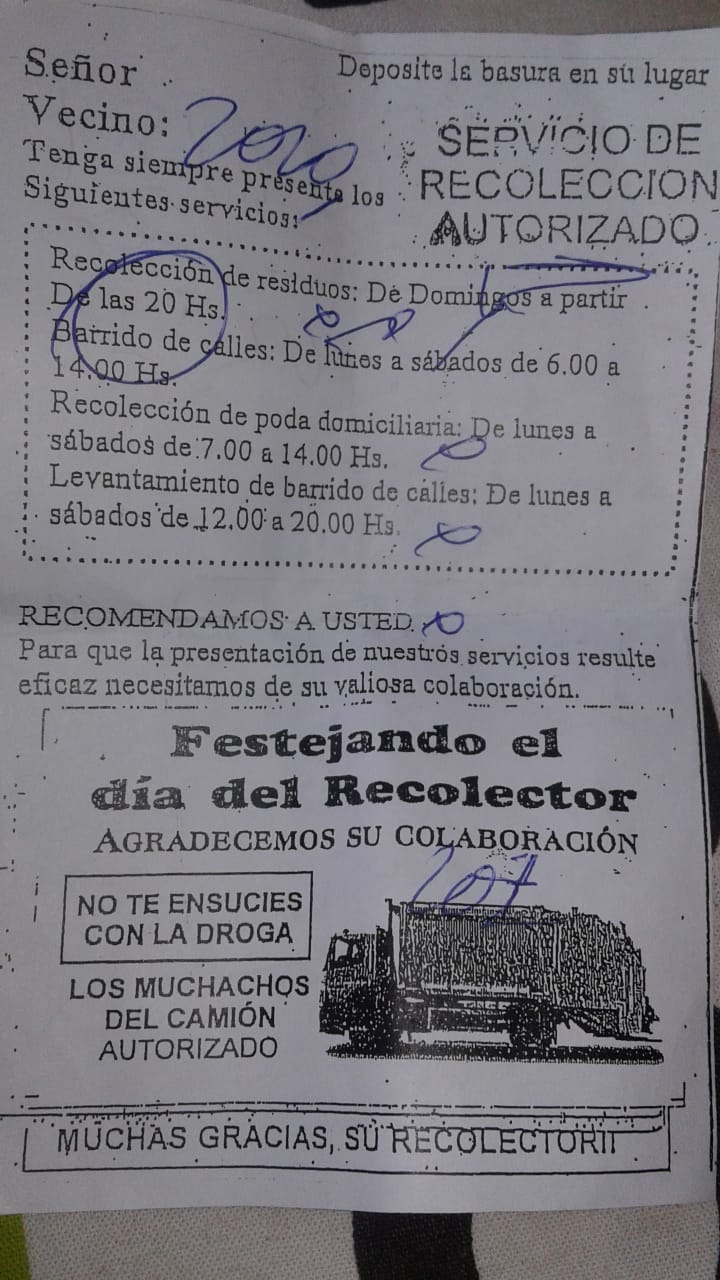 Señor
Vecino:
2020
Deposite la basura en su lugar
SERVICIO DE
RECOLECCION
AUTORIZADO
Tenga siempre presente los
Siguientes servicios:
Recolección de residuos: De Domingos a partir
De las 20 Hs.
Barrido de calles: De lunes a sábados de 6.00 a
14.00 Hs.
Recolección de poda domiciliaria: De lunes a
sábados de 7.00 a 14.00 Hs.
Levantamiento de barrido de calles: De lunes a
sábados de 12.00 a 20.00 Hs.
RECOMENDAMOS A USTED
Para que la presentación de nuestros servicios resulte
eficaz necesitamos de su valiosa colaboración.
Festejando el
día del Recolector
AGRADECEMOS SU COLABORACIÓN
NO TE ENSUCIES
CON LA DROGA
LOS MUCHACHOS
DEL CAMIÓN
AUTORIZADO
MUCHAS GRACIAS, SU RECOLECTOR!!